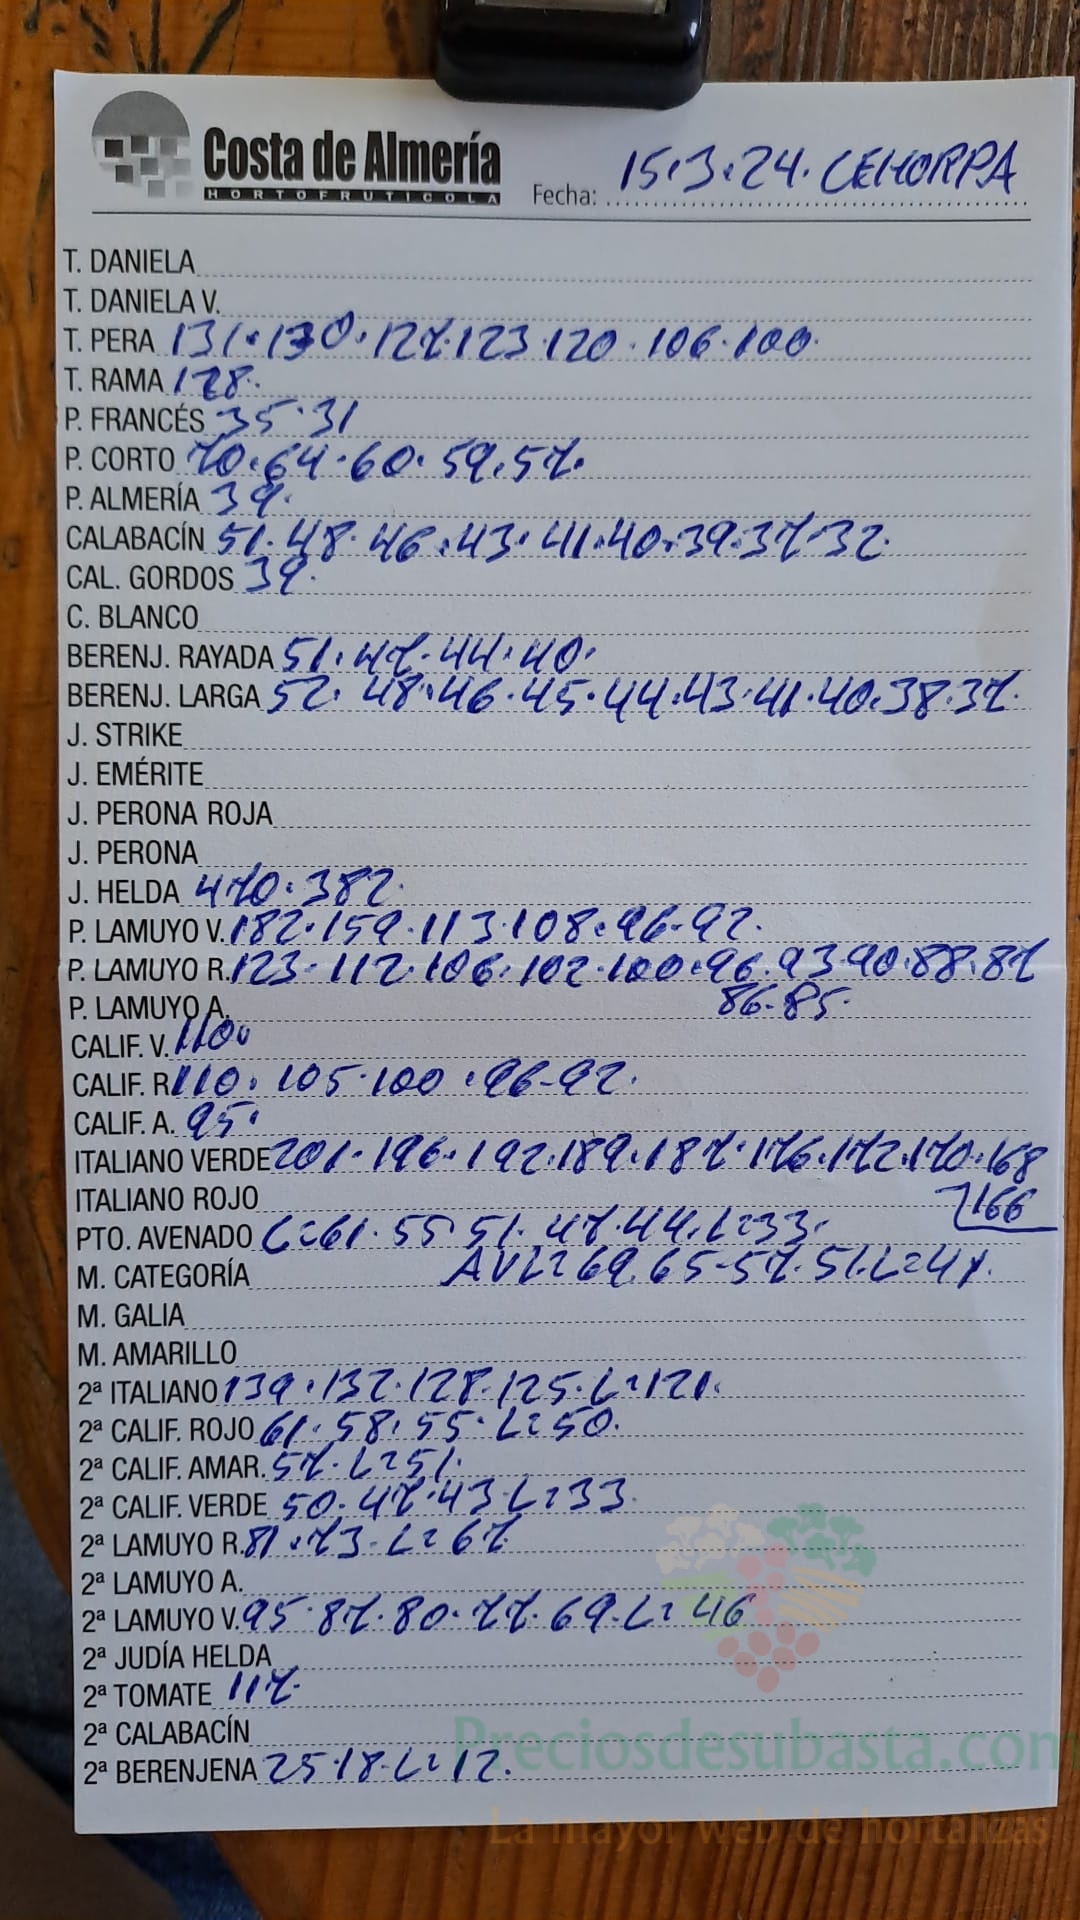 Costa de Almería
HORTOFRUTICOLA
Fecha: 15.3.24. CEHORPA
T. DANIELA
T. DANIELA V.
T. PERA 131.130.127.123.120.106.100.
T. RAMA 128.
P. FRANCÉS 35.31
P. CORTO 70.64.60.59.57.
P. ALMERÍA 39.
CALABACÍN 51.48.46.43.41.40.39.37.32.
CAL. GORDOS 39.
C. BLANCO
BERENJ. RAYADA 51.47.44.40.
BERENJ. LARGA 52.48.46.45.44.43.41.40.38.37.
J. STRIKE
J. EMÉRITE
J. PERONA ROJA
J. PERONA
J. HELDA 470.382.
P. LAMUYO V. 182.159.113.108.96-92.
P. LAMUYO R. 123-112.106.102.100.96.93.90.88.87
86-85.
P. LAMUYO A.
CALIF. V. 110.
CALIF. R 110.105.100.96-92.
CALIF. A. 95.
ITALIANO VERDE 201.196.192.189.187.176.172.170.168
166
ITALIANO ROJO
PTO. AVENADO C=61.55.51.47.44.L=33.
AVL=69.65-57.51.L=47.
M. CATEGORÍA
M. GALIA
M. AMARILLO
2ª ITALIANO 139.132.128-125.L=121.
2ª CALIF. ROJO 61.58.55.L=50.
2ª CALIF. AMAR. 57.L=51.
2ª CALIF. VERDE 50.47.43.L=33.
2ª LAMUYO R. 81.73-L=67
2ª LAMUYO A.
2ª LAMUYO V. 95.87.80.77.69.L=46
2ª JUDÍA HELDA
2ª TOMATE 117.
2ª CALABACÍN
2ª BERENJENA 25.18.L=12.
Preciosdesubasta.com
La mayor web de hortalizas